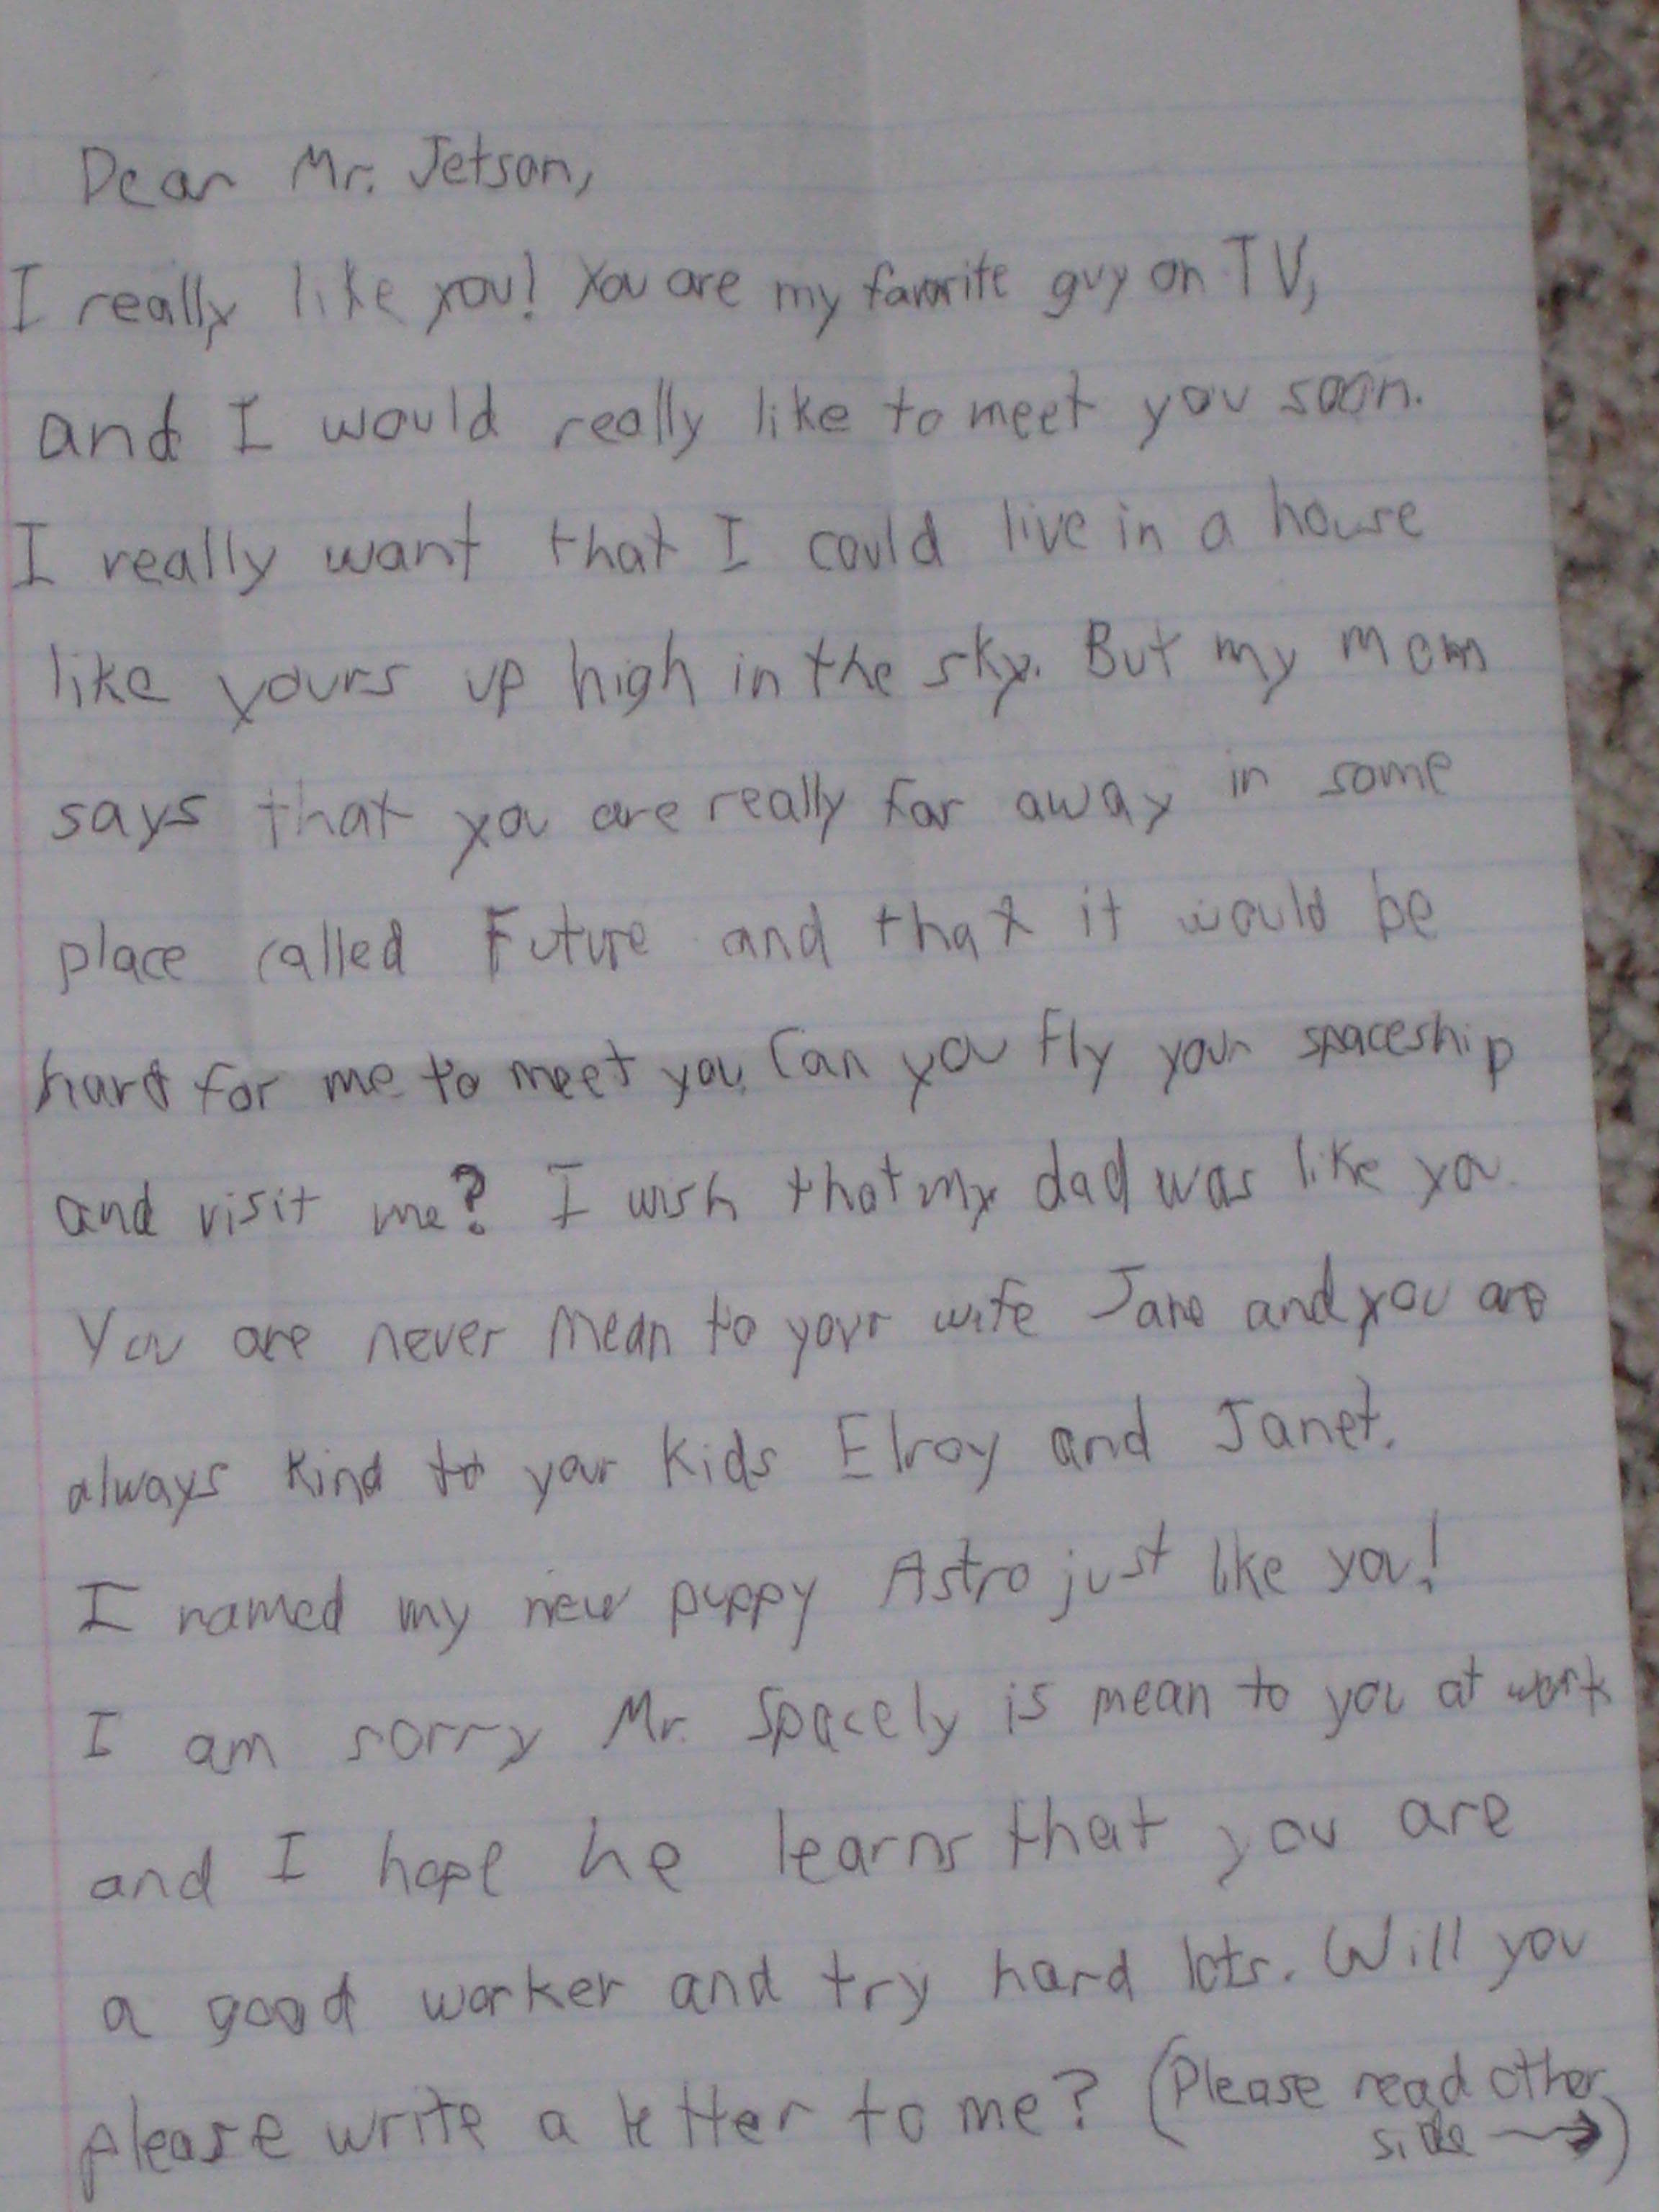 Dear Mr. Jetson,
I really like you! You are my favorite guy on TV,
and I would really like to meet you soon.
I really want that I could live in a house
like yours up high in the sky. But my mom
says that you are really far away in some
place called Future and that it would be
hard for me to meet you. Can you fly your spaceship
and visit me? I wish that my dad was like you.
You are never mean to your wife Jane and you are
always kind to your kids Elroy and Janet.
I named my new puppy Astro just like you!
I am sorry Mr. Spacely is mean to you at work
and I hope he learns that you are
a good worker and try hard lots. Will you
please write a letter to me? (Please read other
side →)